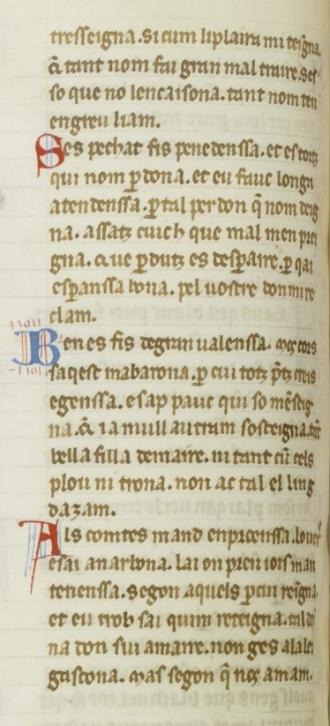 tresseigna. Si cum li plaira mi teigna.
q̃ tant nom fai gran mal traire. ses
so que no len caisona. tant nom ten
engreu liam.
Ses pechat fis penedenssa. et es tortz
qui nom p̱dona. et eu fauc longa
atendenssa. p̱ tal perdon q̃ nom deig
na. assatz cuich que mal men pren
gna. que p̱dutz es despaire. p̱ qai
espanssa bona. pel vostre don mire
clam.
Ben es fis de gran valenssa. mos cors
saqest mabarona. p̱ cui totz p̃tz creis
egenssa. e sap pauc qui so mẽseig
na. q̃ ia nuill autram sosteigna. tant
bella filla de maire. ni tant cũ cels
plou ni trona. non ac tal el ling
dazam.
Als comtes mand en pzenssa.
e sai a narbona. lai on pren iois man
tenenssa. segon aquels p̱ cui reigna.
et eu trob sai quim reteigna. tal do
na don sui amaire. non ges a la lei
gascona. mas segon q̃ nos amam.